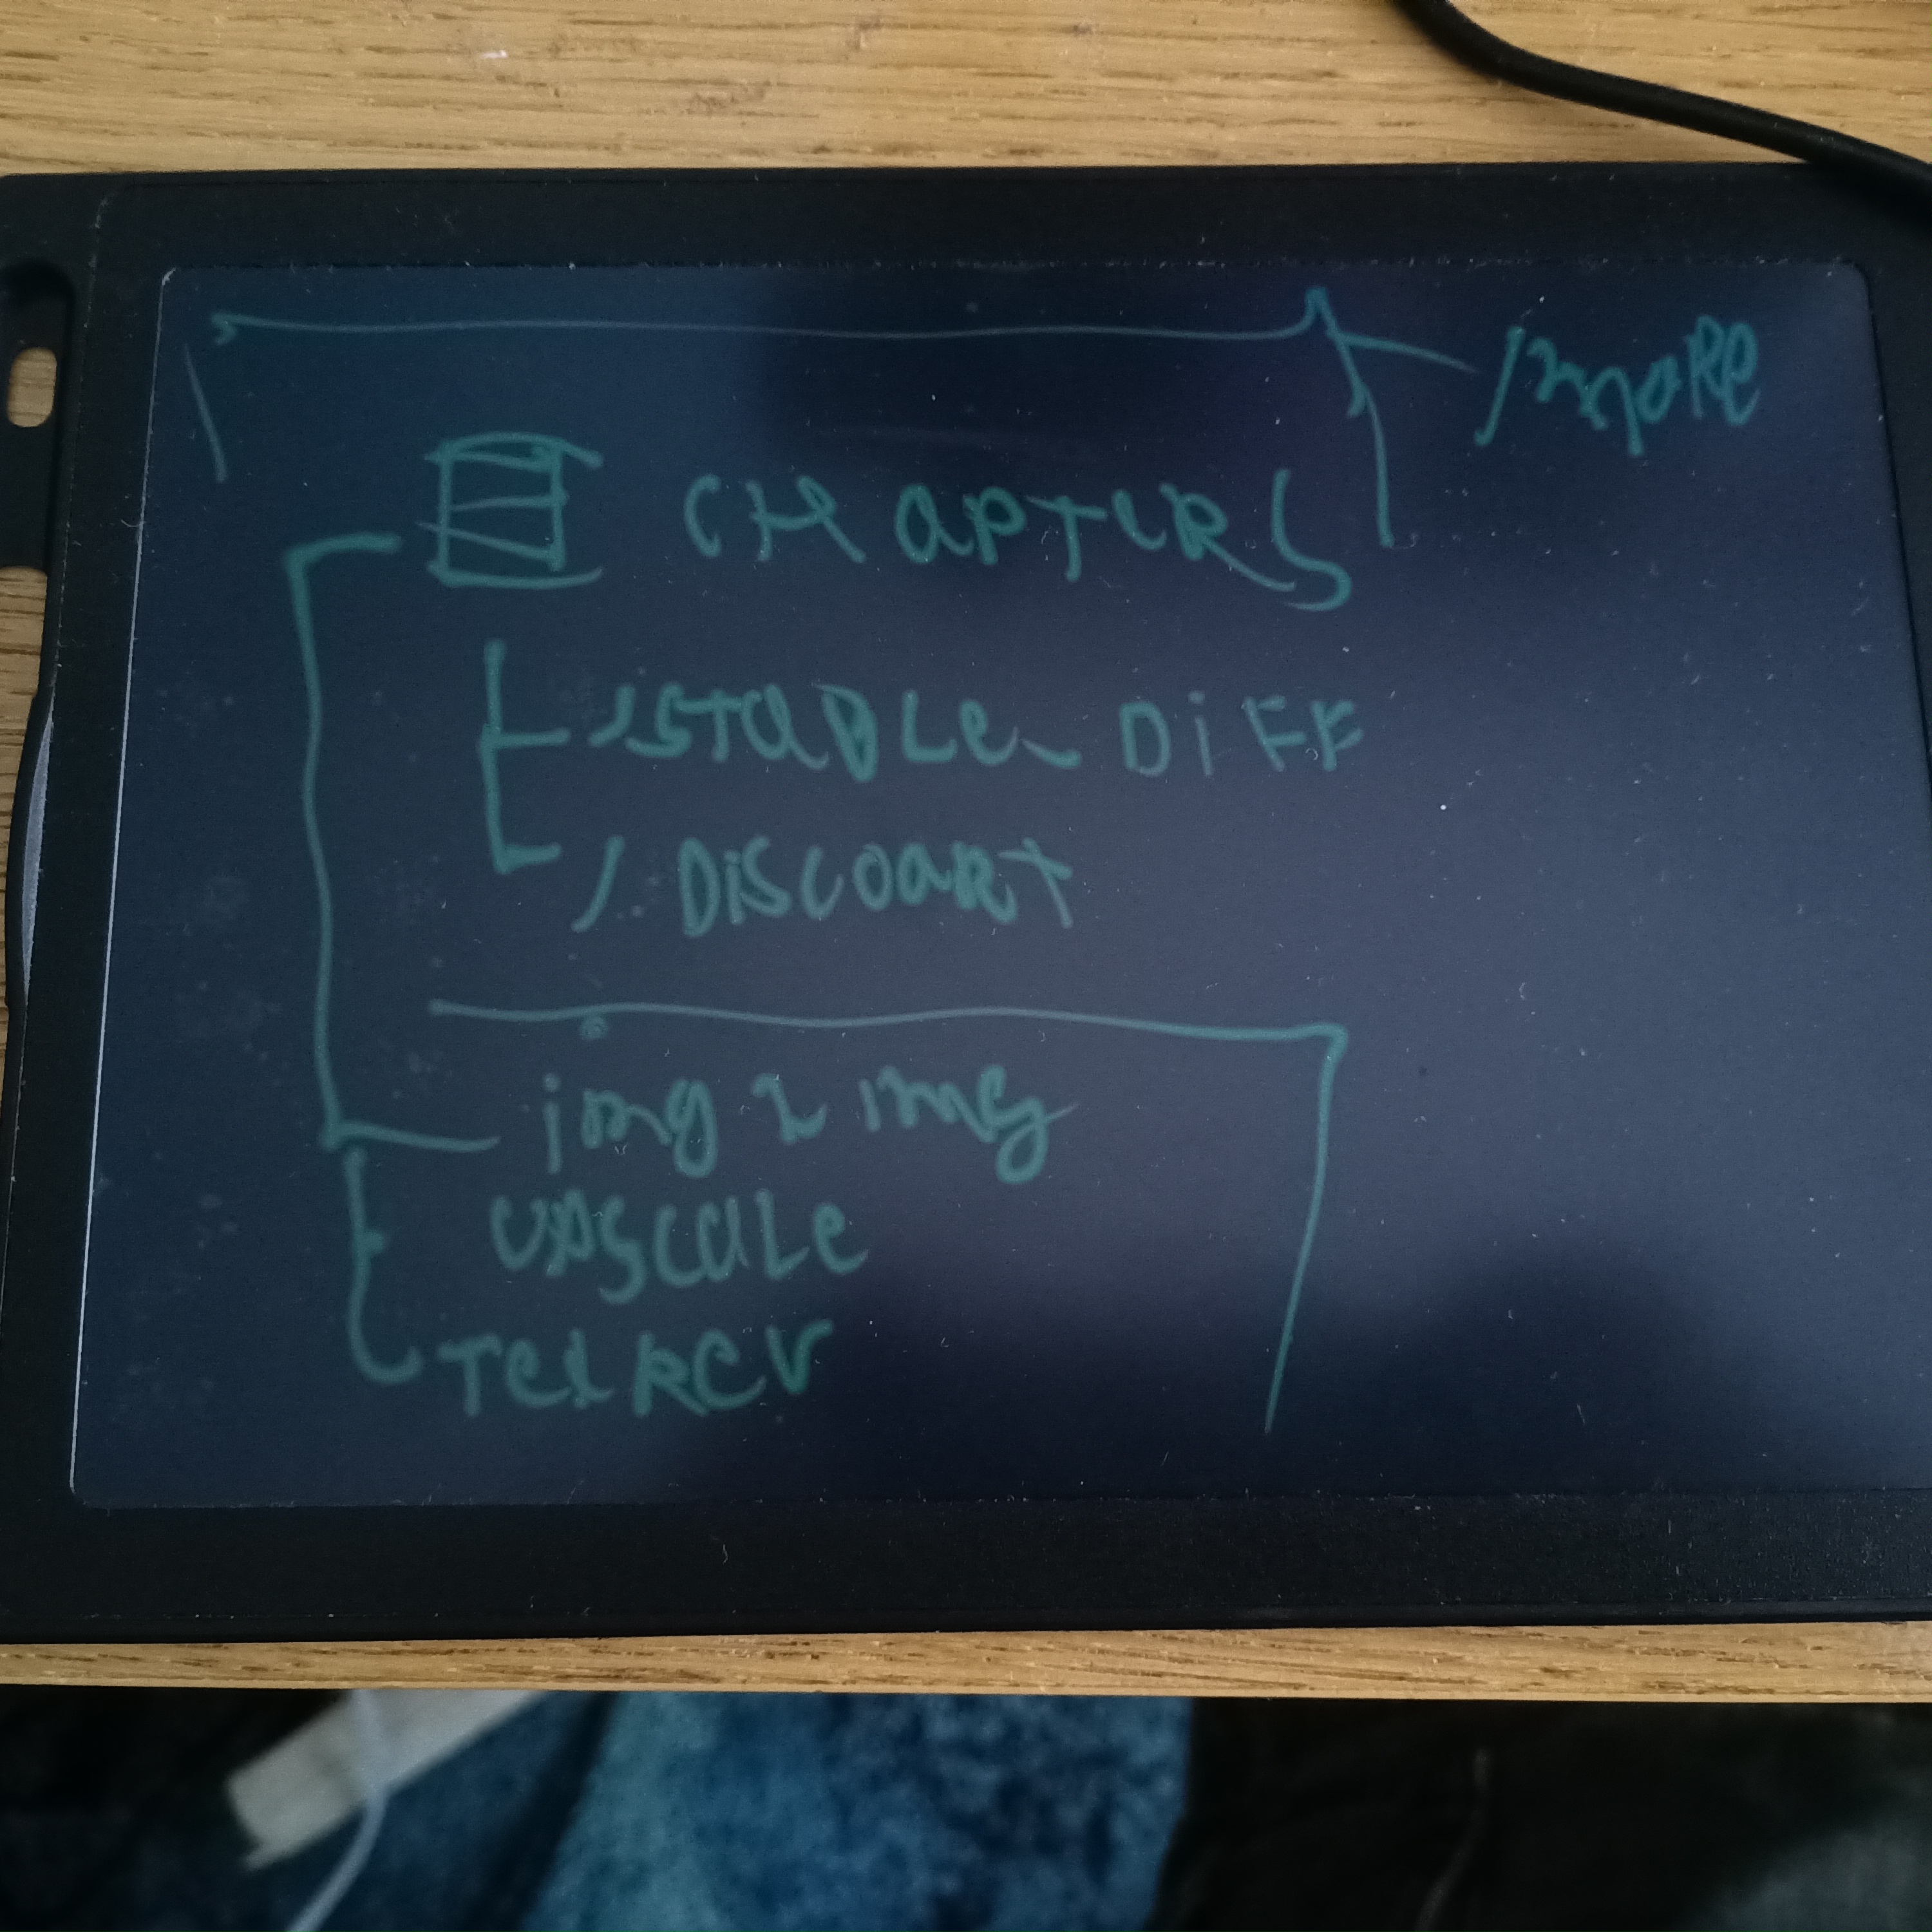 /more
CHAPTERS
/STABLE_DIFF
/DISCOART
img2img
UPSCALE